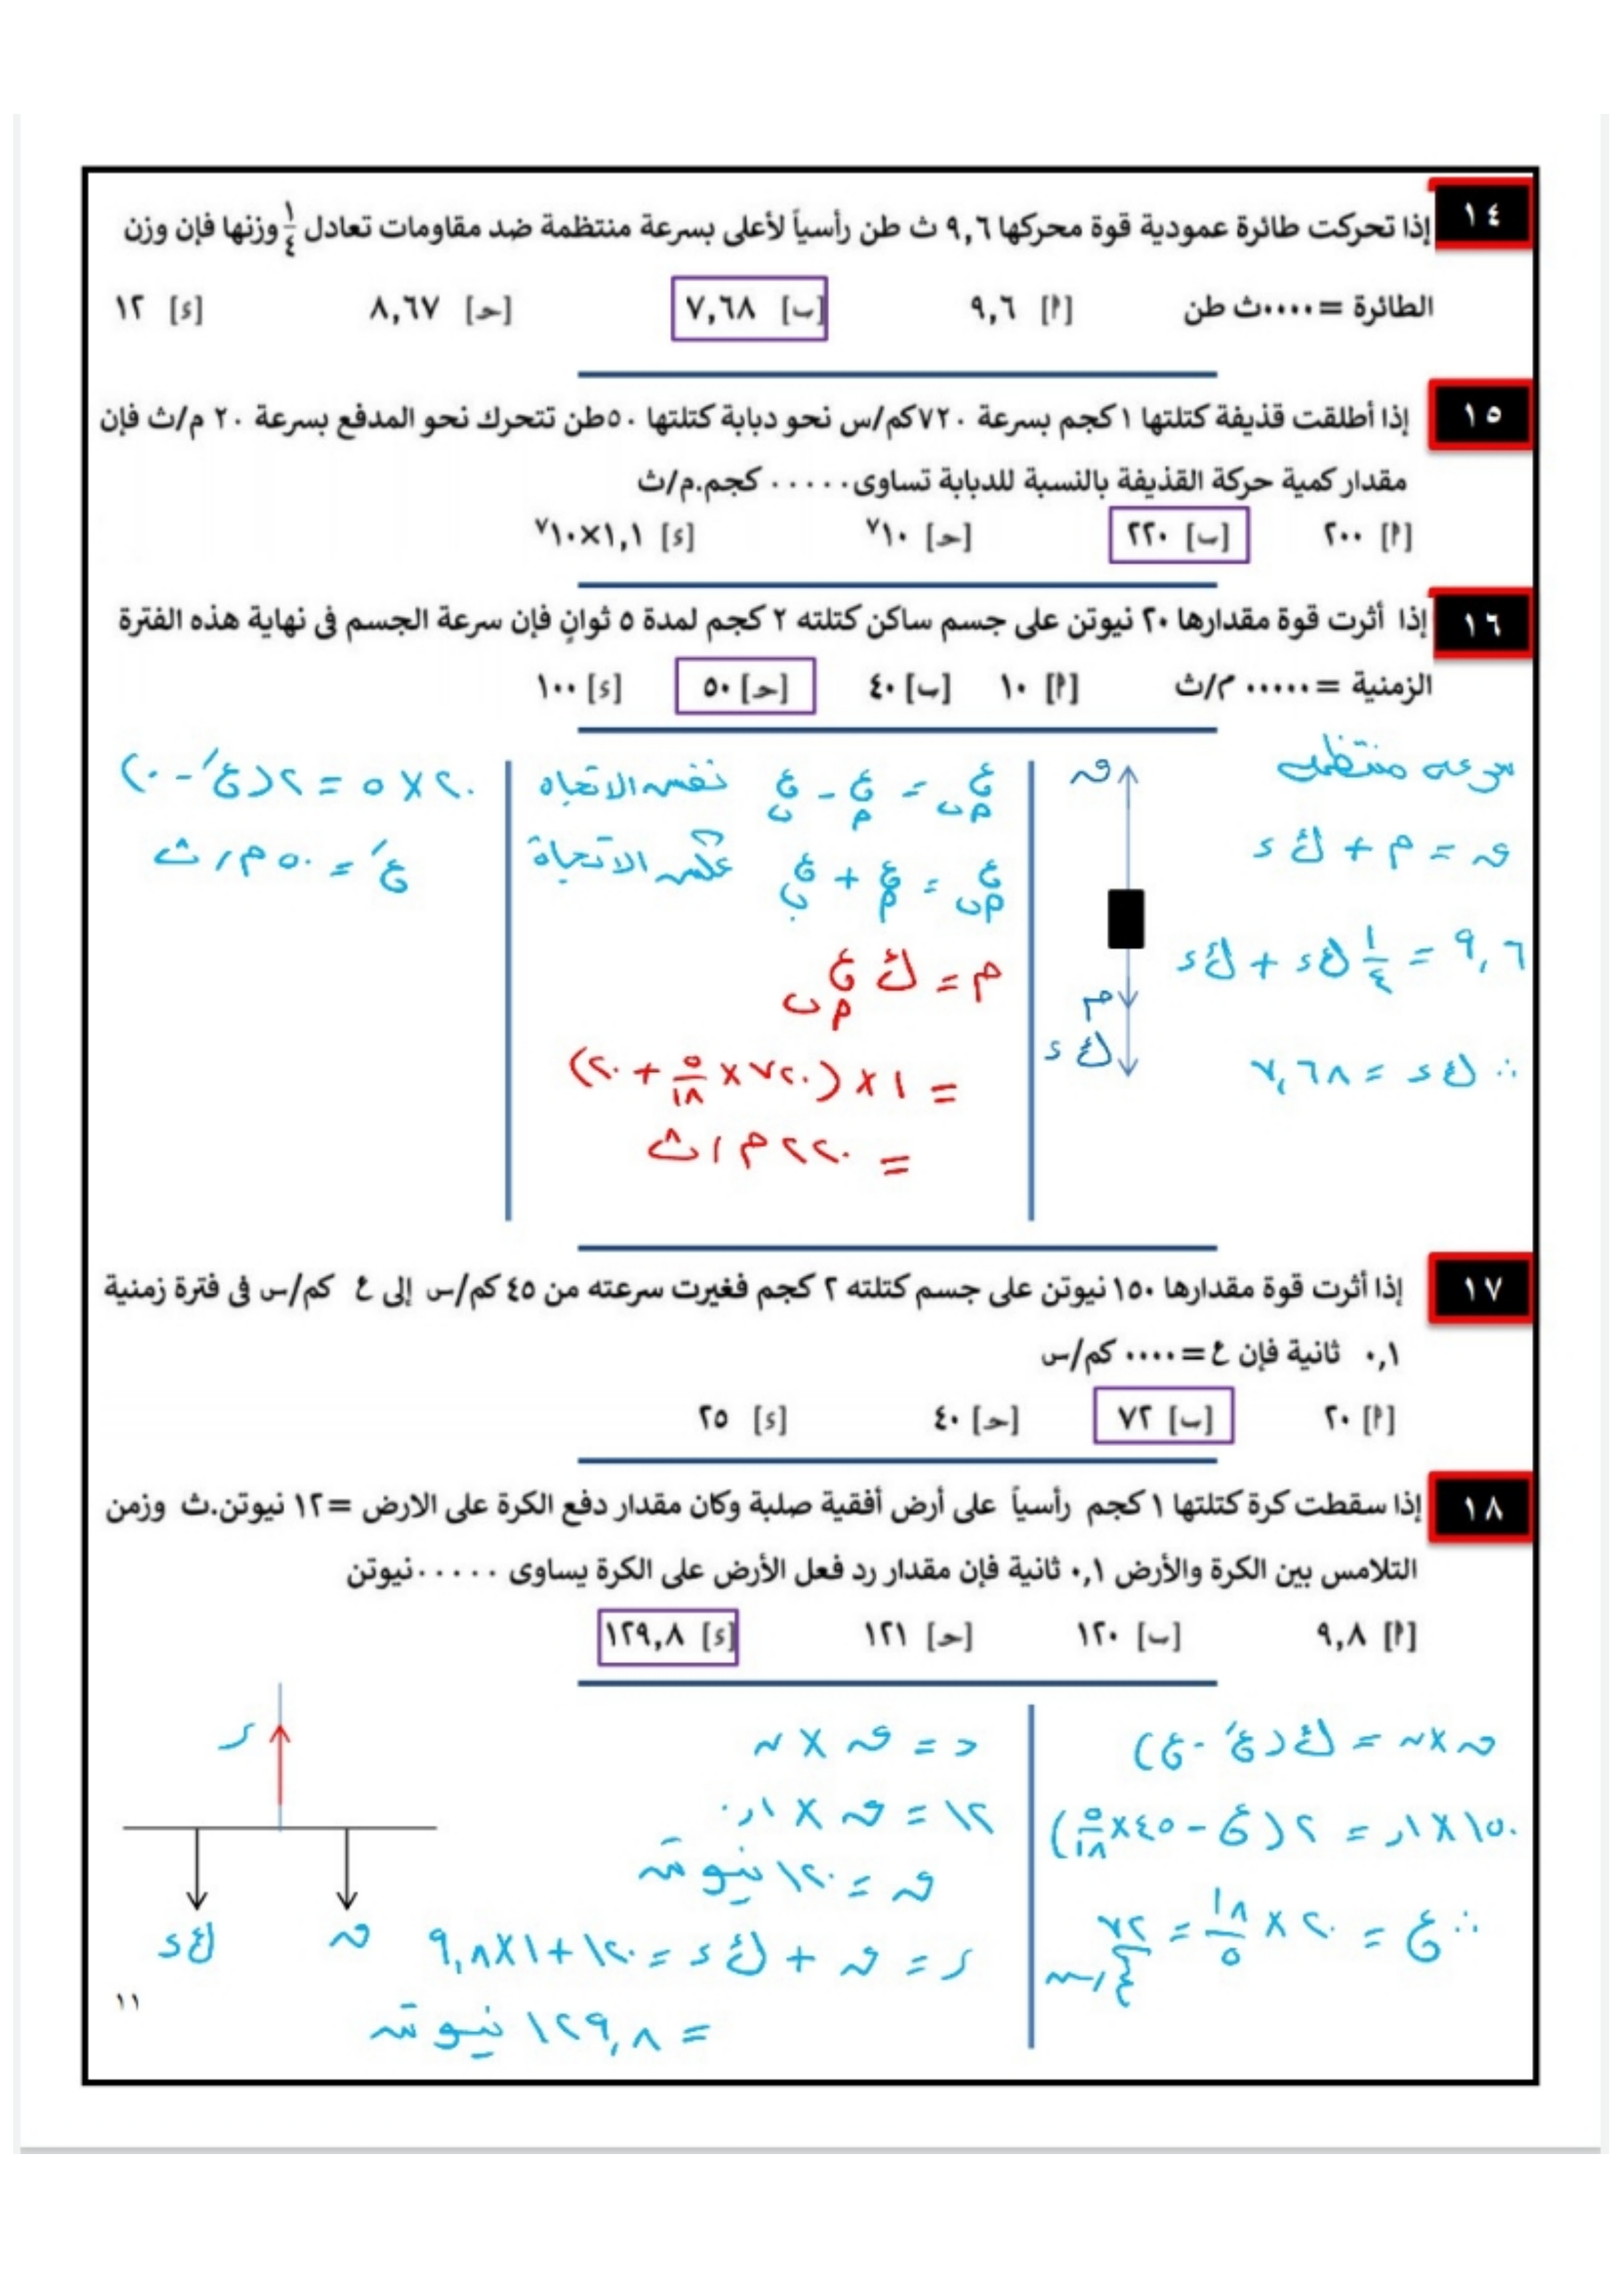 ١٤
إذا تحركت طائرة عمودية قوة محركها ٩,٦ ث طن رأسياً لأعلى بسرعة منتظمة ضد مقاومات تعادل ١/٤ وزنها فإن وزن
الطائرة = ٠٠٠٠ ث طن [أ] ٩,٦ [ب] ٧,٦٨ [حـ] ٨,٦٧ [ء] ١٢
١٥
إذا أطلقت قذيفة كتلتها ١ كجم بسرعة ٧٢٠ كم/س نحو دبابة كتلتها ٥٠ طن تتحرك نحو المدفع بسرعة ٢٠ م/ث فإن
مقدار كمية حركة القذيفة بالنسبة للدبابة تساوى ٠٠٠٠٠ كجم.م/ث
[أ] ٢٠٠ [ب] ٢٢٠ [حـ] ١٠^٧ [ء] ١,١×١٠^٧
١٦
إذا أثرت قوة مقدارها ٢٠ نيوتن على جسم ساكن كتلته ٢ كجم لمدة ٥ ثوانٍ فإن سرعة الجسم فى نهاية هذه الفترة
الزمنية = ٠٠٠٠٠ م/ث [أ] ١٠ [ب] ٤٠ [حـ] ٥٠ [ء] ١٠٠
سرعه منتظمه
ق = م + ك ء
٩,٦ = ١/٤ ك ء + ك ء
∴ ك ء = ٧,٦٨
ق
م
ك ء
ع م ب = ع م - ع ب نفس الاتجاه
ع م ب = ع م + ع ب عكس الاتجاه
م = ك ع م ب
= ١ × (٧٢٠ × ٥/١٨ + ٢٠)
= ٢٢٠ م/ث
٢٠ × ٥ = ٢(ع´ - ٠)
ع´ = ٥٠ م/ث
١٧
إذا أثرت قوة مقدارها ١٥٠ نيوتن على جسم كتلته ٢ كجم فغيرت سرعته من ٤٥ كم/س إلى ع كم/س فى فترة زمنية
٠,١ ثانية فإن ع = ٠٠٠٠ كم/س
[أ] ٢٠ [ب] ٧٢ [حـ] ٤٠ [ء] ٢٥
١٨
إذا سقطت كرة كتلتها ١ كجم رأسياً على أرض أفقية صلبة وكان مقدار دفع الكرة على الارض = ١٢ نيوتن.ث وزمن
التلامس بين الكرة والأرض ٠,١ ثانية فإن مقدار رد فعل الأرض على الكرة يساوى ٠٠٠٠٠ نيوتن
[أ] ٩,٨ [ب] ١٢٠ [حـ] ١٢١ [ء] ١٢٩,٨
ق × ن = ك(ع´ - ع)
١٥٠ × ٠,١ = ٢(ع - ٤٥ × ٥/١٨)
∴ ع = ٢٠ × ١٨/٥ = ٧٢ كم/س
د = ق × ن
١٢ = ق × ٠,١
ق = ١٢٠ نيوتن
ر = ق + ك ء = ١٢٠ + ١ × ٩,٨
= ١٢٩,٨ نيوتن
ر
ق
ك ء
١١